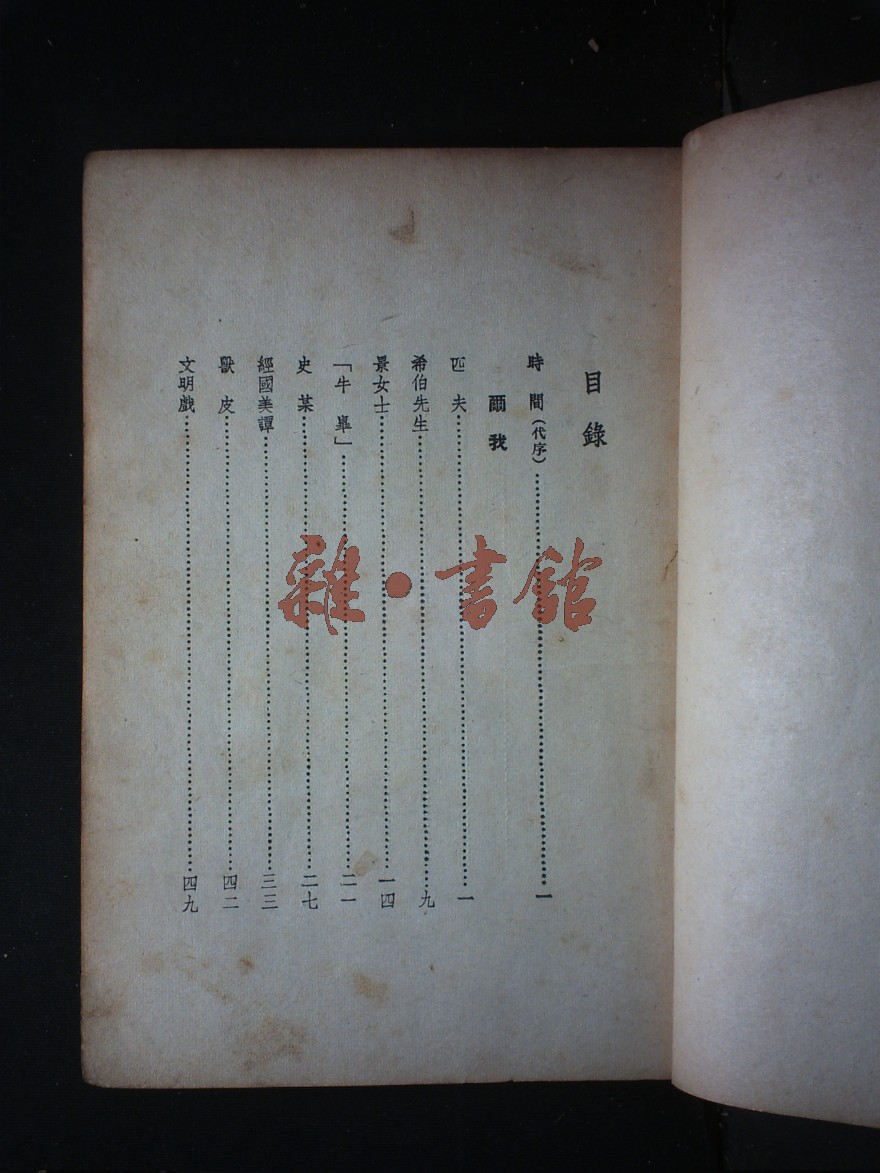 目錄
時間（代序）……一
爾我
匹夫……一
希伯先生……九
景女士……一四
「牛犟」……二一
史某……二七
經國美譚……三三
獸皮……四二
文明戲……四九
雜·書館